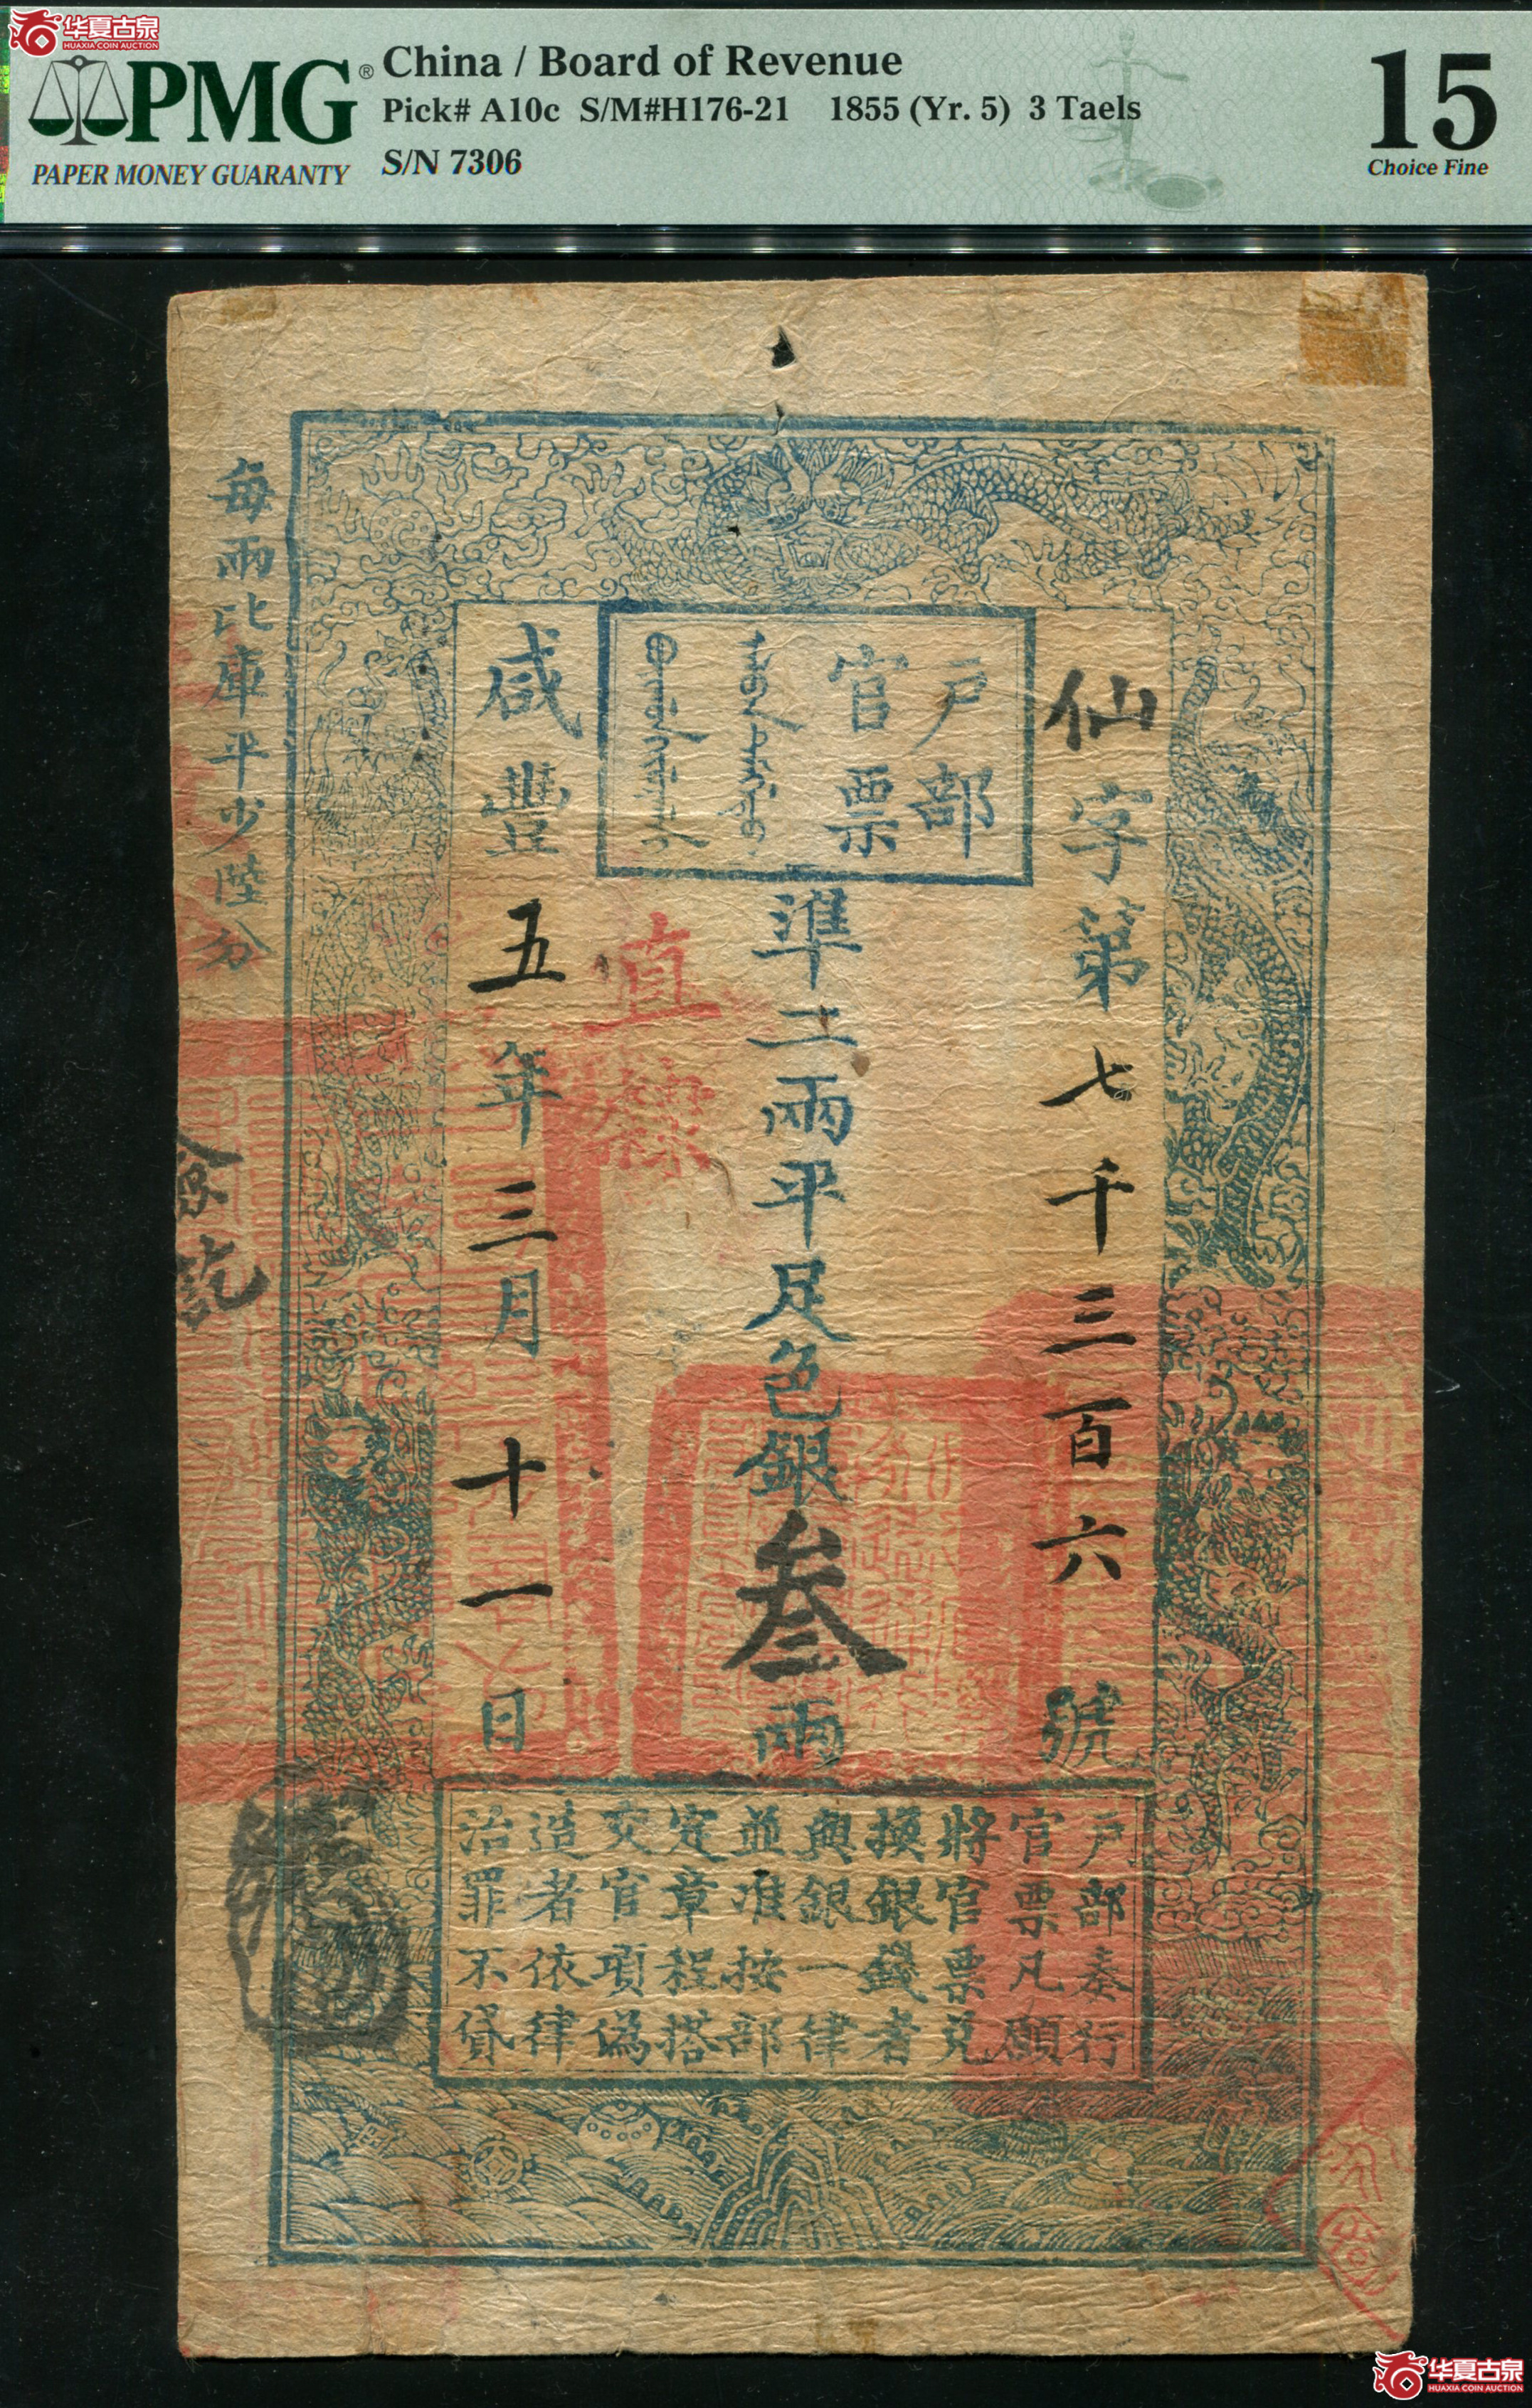 华夏古泉
HUAXIA COIN AUCTION
PMG®
PAPER MONEY GUARANTY
China / Board of Revenue
Pick# A10c S/M#H176-21 1855 (Yr. 5) 3 Taels
S/N 7306
15
Choice Fine
戶部
官票
仙字第七千三百六號
準二兩平足色銀叁兩
直隸
咸豐五年三月十一日
每兩比庫平少陸分
戶部奏行
官票凡願
將官票兌
換銀錢者
與銀一律
並准按部
定章程搭
交官項偽
造者依律
治罪不貸
华夏古泉
HUAXIA COIN AUCTION